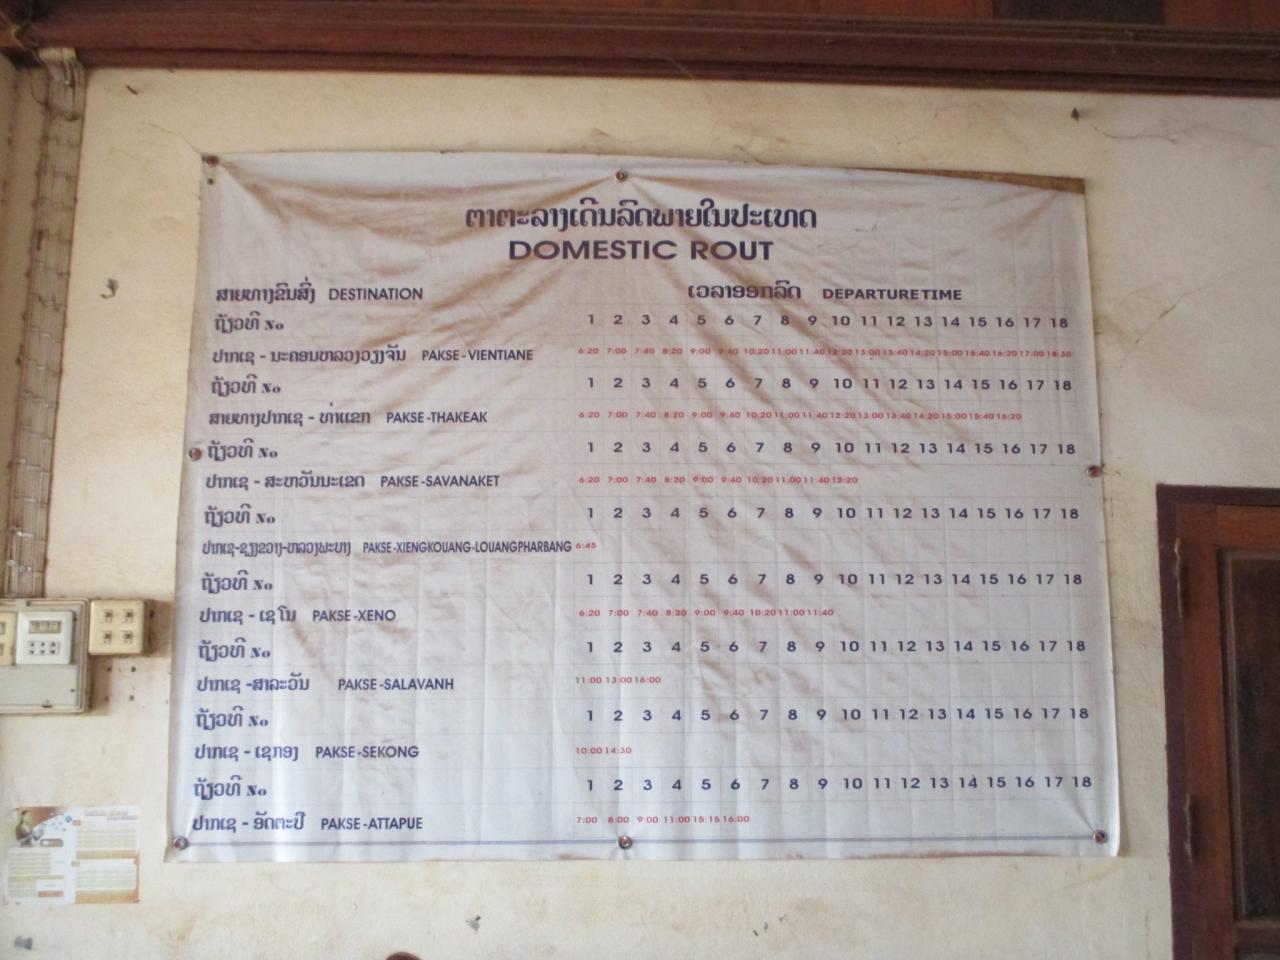 ຕາຕະລາງເດີນລົດພາຍໃນປະເທດ
DOMESTIC ROUT
ສາຍທາງຂົນສົ່ງ DESTINATION ເວລາອອກລົດ DEPARTURETIME
ຖ້ຽວທີ No 1 2 3 4 5 6 7 8 9 10 11 12 13 14 15 16 17 18
ປາກເຊ - ນະຄອນຫລວງວຽງຈັນ PAKSE-VIENTIANE 6:20 7:00 7:40 8:20 9:00 9:40 10:20 11:00 11:40 12:20 13:00 13:40 14:20 15:00 15:40 16:20 17:00 18:30
ຖ້ຽວທີ No 1 2 3 4 5 6 7 8 9 10 11 12 13 14 15 16 17 18
ສາຍທາງປາກເຊ - ທ່າແຂກ PAKSE-THAKEAK 6:20 7:00 7:40 8:20 9:00 9:40 10:20 11:00 11:40 12:20 13:00 13:40 14:20 15:00 15:40 16:20
ຖ້ຽວທີ No 1 2 3 4 5 6 7 8 9 10 11 12 13 14 15 16 17 18
ປາກເຊ - ສະຫວັນນະເຂດ PAKSE-SAVANAKET 6:20 7:00 7:40 8:20 9:00 9:40 10:20 11:00 11:40 12:20
ຖ້ຽວທີ No 1 2 3 4 5 6 7 8 9 10 11 12 13 14 15 16 17 18
ປາກເຊ-ຊຽງຂວາງ-ຫລວງພະບາງ PAKSE-XIENGKOUANG-LOUANGPHARBANG 6:45
ຖ້ຽວທີ No 1 2 3 4 5 6 7 8 9 10 11 12 13 14 15 16 17 18
ປາກເຊ - ເຊໂນ PAKSE-XENO 6:20 7:00 7:40 8:20 9:00 9:40 10:20 11:00 11:40
ຖ້ຽວທີ No 1 2 3 4 5 6 7 8 9 10 11 12 13 14 15 16 17 18
ປາກເຊ -ສາລະວັນ PAKSE-SALAVANH 11:00 13:00 16:00
ຖ້ຽວທີ No 1 2 3 4 5 6 7 8 9 10 11 12 13 14 15 16 17 18
ປາກເຊ - ເຊກອງ PAKSE-SEKONG 10:00 14:30
ຖ້ຽວທີ No 1 2 3 4 5 6 7 8 9 10 11 12 13 14 15 16 17 18
ປາກເຊ - ອັດຕະປື PAKSE-ATTAPUE 7:00 8:00 9:00 11:00 15:15 16:00